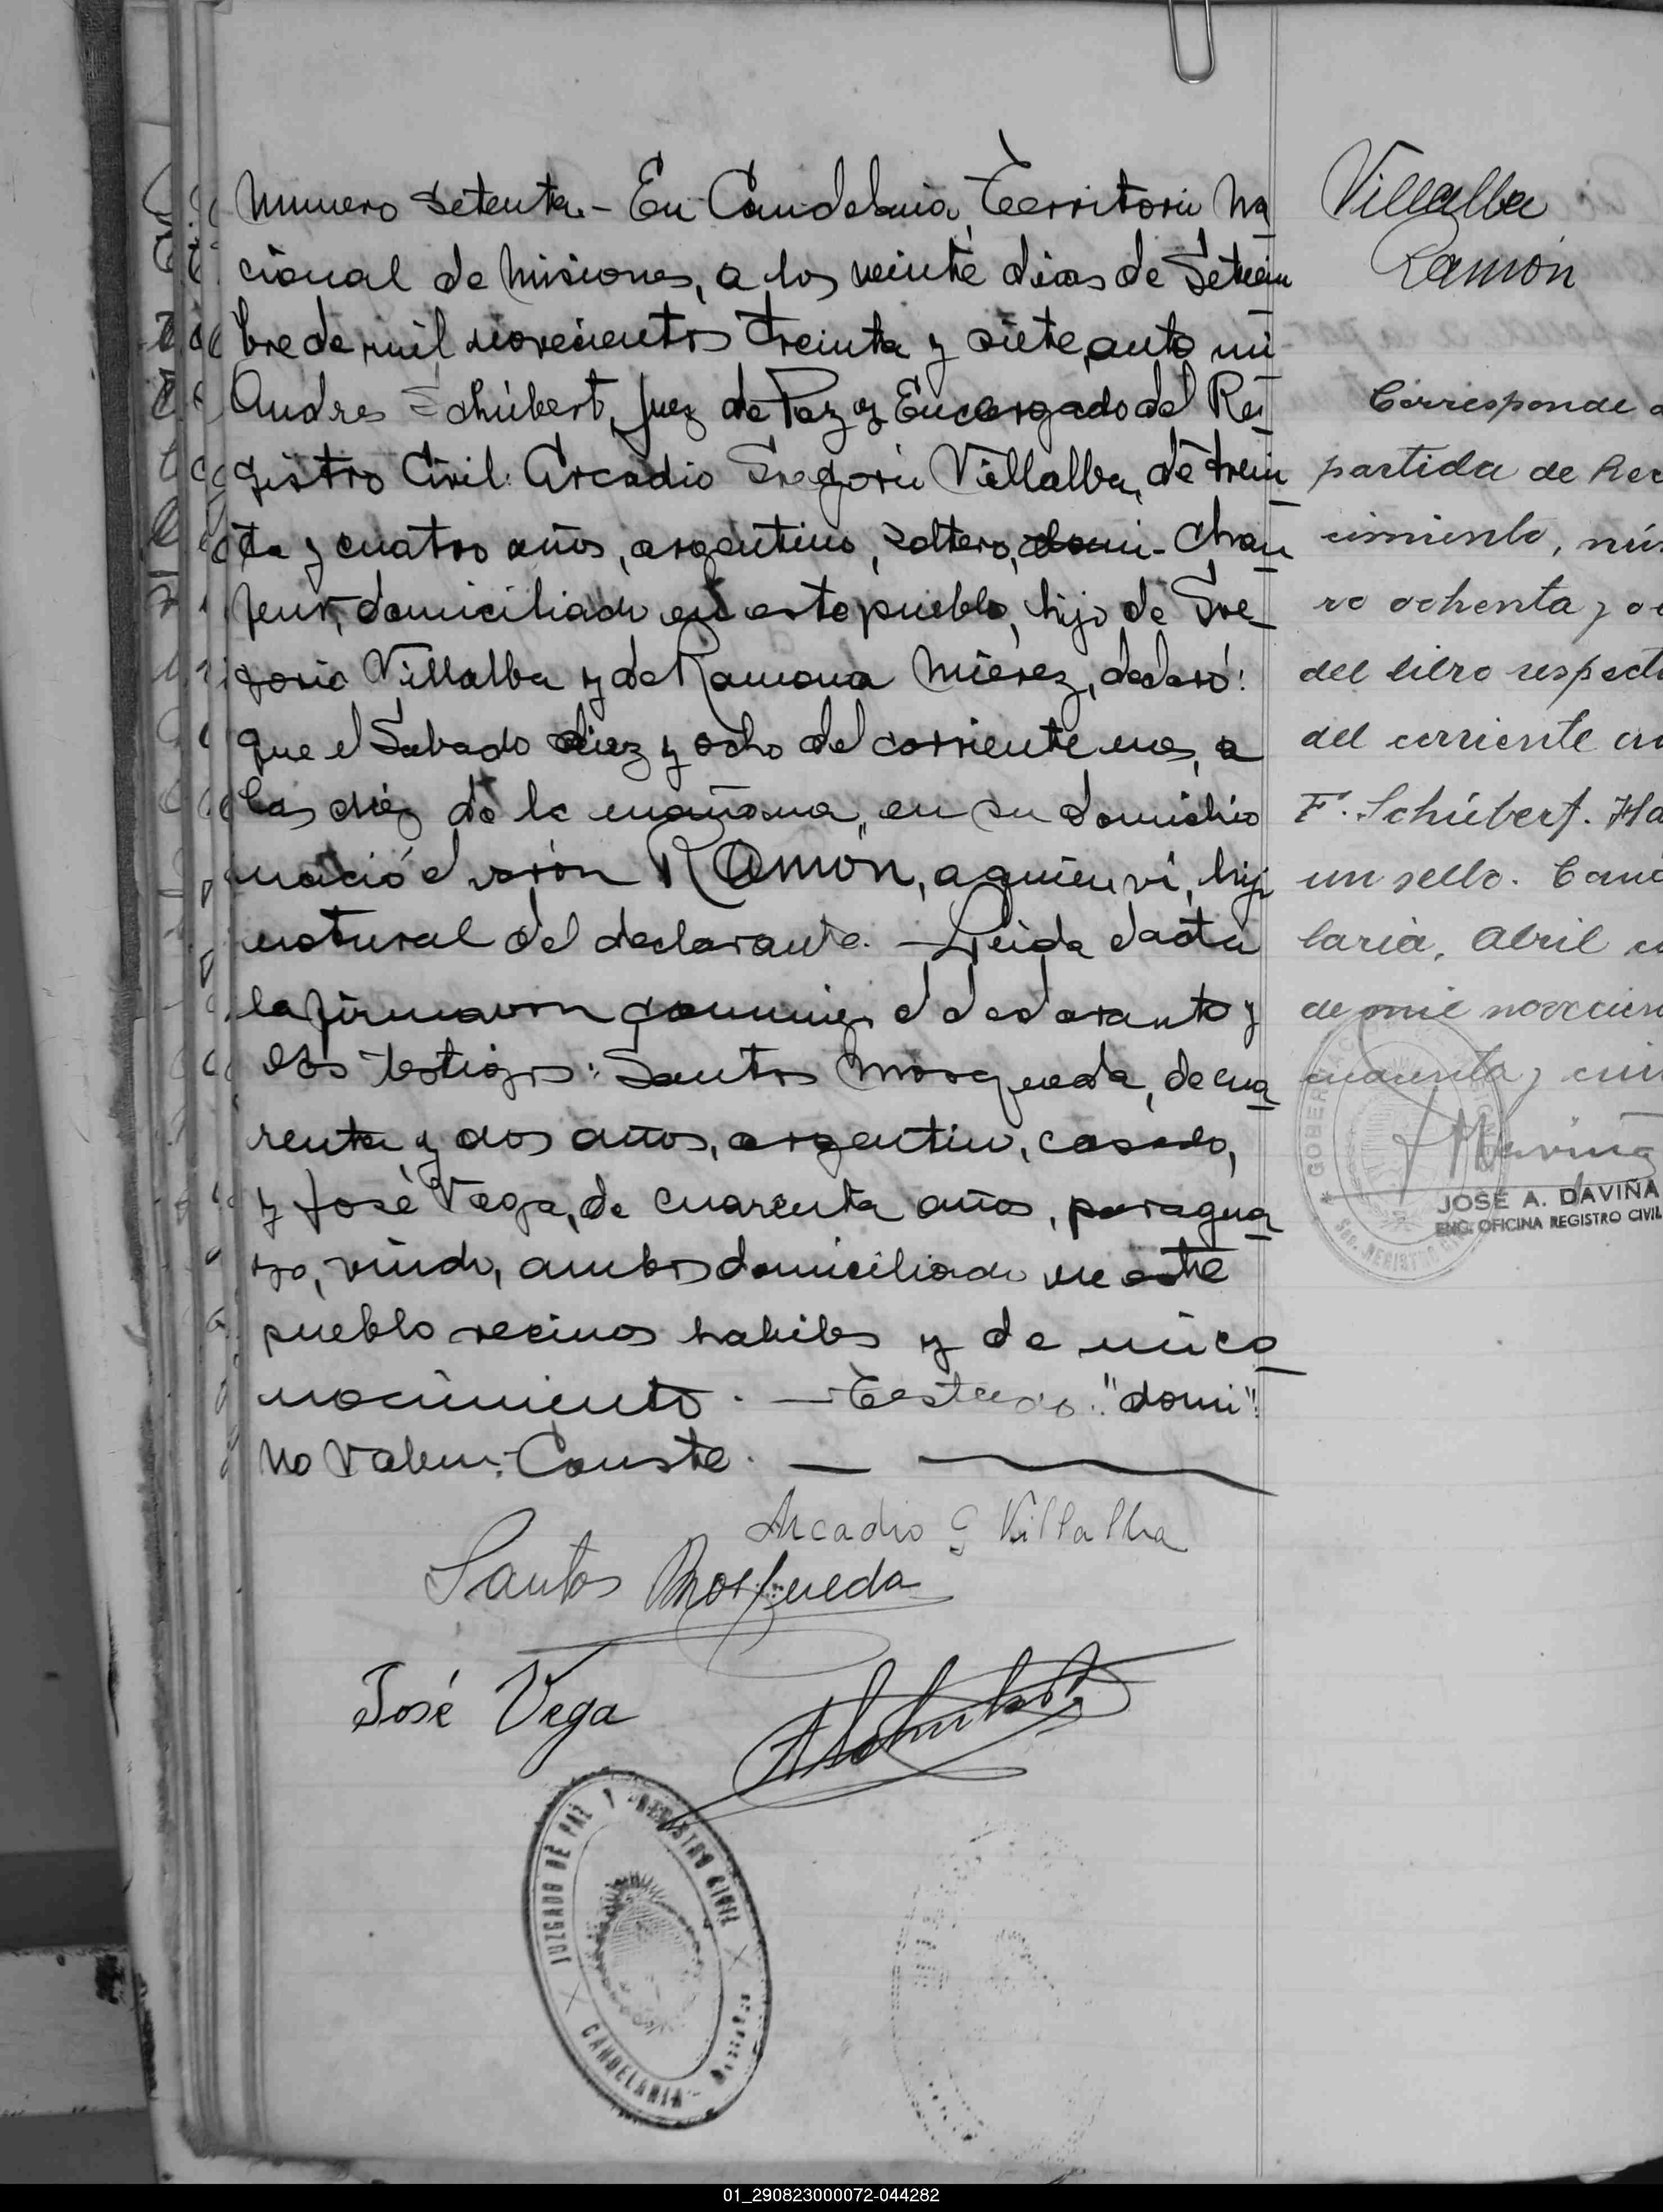 Numero Setenta.- En Candelaria, Territorio Na
cional de Misiones, a los veinte dias de Setiem
bre de mil novecientos treinta y siete, ante mi
Andres Schübert, Juez de Paz y Encargado del Re
gistro Civil: Arcadio Gregorio Villalba, de trein
ta y cuatro años, argentino, soltero, domi- Chau
feur, domiciliado en este pueblo, hijo de Gre
gorio Villalba y de Ramona Mierez, declaró:
que el Sabado diez y ocho del corriente mes, a
las diez de la mañana, en su domicilio
nació el varón RAMÓN, a quien vi, hijo
natural del declarante. - Leida el acta
la firmaron conmigo el declarante y
los testigos: Santos Mosqueda, de cua
renta y dos años, argentino, casado,
y José Vega, de cuarenta años, paragua
yo, viudo, ambos domiciliado en este
pueblo vecinos habiles y de mi co
nocimiento. - Testado: "domi"
No Valen: Conste.
Arcadio G Villalba
Santos Mosqueda
José Vega
ASchubert
JUZGADO DE PAZ Y REGISTRO CIVIL
CANDELARIA - MISIONES
Villalba
Ramón
Corresponde a
partida de Rec
cimiento, nú
ro ochenta y o
del libro respecti
del corriente
F. Schübert. Ha
un sello. Cand
laria, Abril
de mil novecien
cuarenta y cin
GOBERNAC
REGISTRO CIVIL
JOSE A. DAVIÑA
ENC. OFICINA REGISTRO CIVIL
01_290823000072-044282